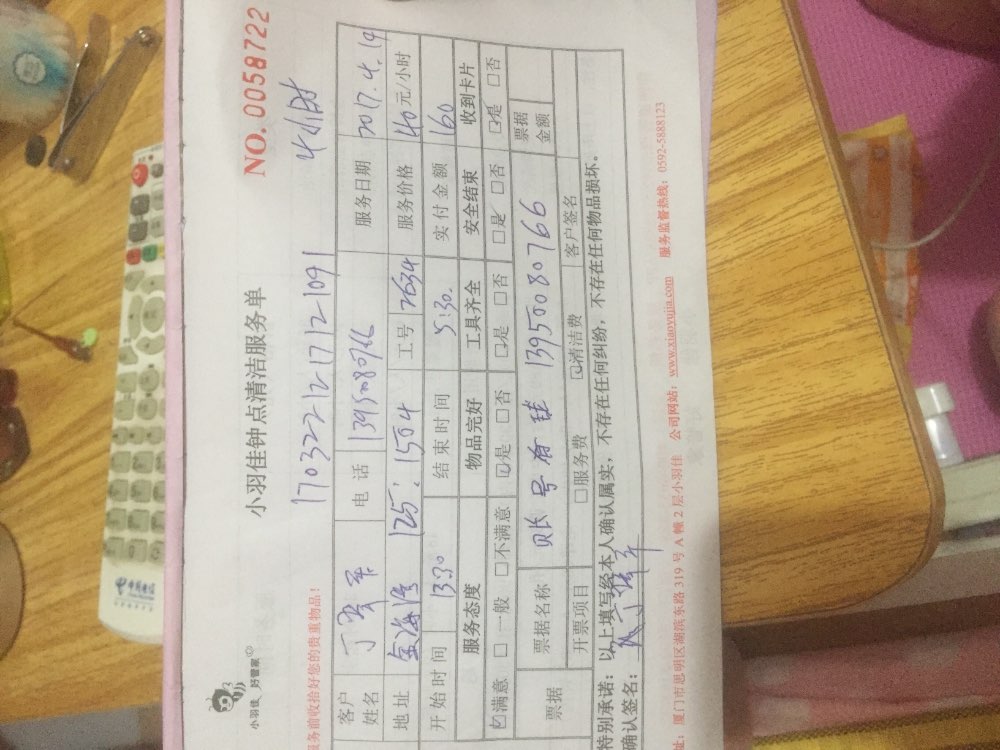 小羽佳 好管家
小羽佳钟点清洁服务单
NO. 0058722
1703221217121091 4小时
服务前收拾好您的贵重物品！
客户姓名 丁 军 电话 13950080766 服务日期 2017.4.19
地址 金海湾 125：1504 工号 2634 服务价格 40元/小时
开始时间 13:30 结束时间 5:30. 实付金额 160
服务态度 物品完好 工具齐全 安全结束 收到卡片
☑满意 □一般 □不满意 ☑是 □否 ☑是 □否 ☑是 □否 ☑是 □否
票据 票据名称 账号有钱 13950080766 票据金额
开票项目 □服务费 ☑清洁费 客户签名
特别承诺：以上填写经本人确认属实，不存在任何纠纷，不存在任何物品损坏。
确认签名：
址：厦门市思明区湖滨东路319号A幢2层小羽佳 公司网站：www.xiaoyujia.com 服务监督热线：0592-5888123
中国电信